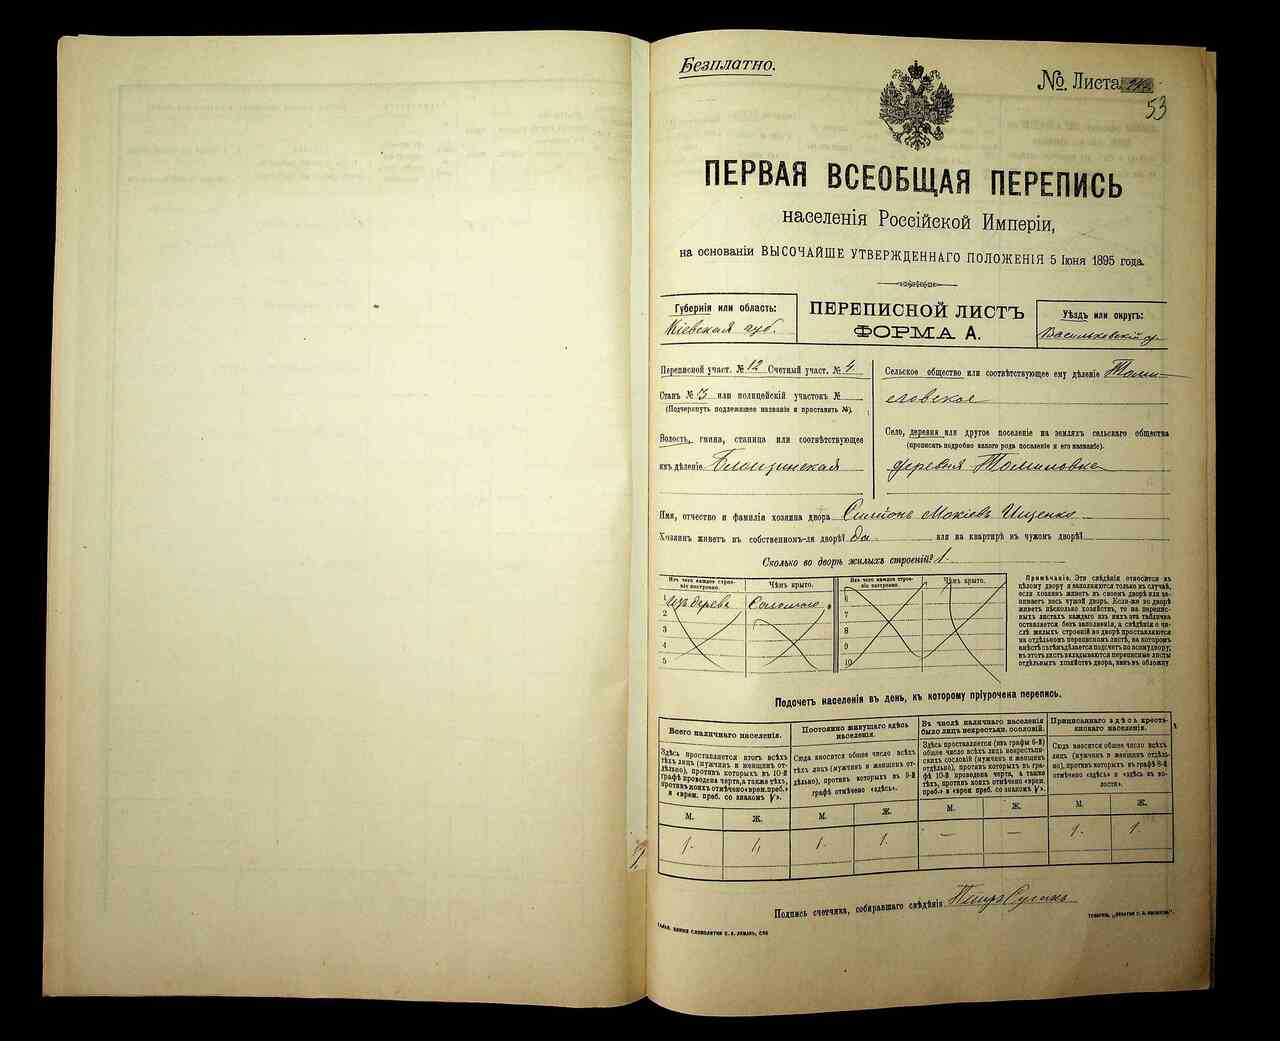 Безплатно.
№ Листа
53
ПЕРВАЯ ВСЕОБЩАЯ ПЕРЕПИСЬ
населенія Россійской Имперіи,
на основаніи ВЫСОЧАЙШЕ УТВЕРЖДЕННАГО ПОЛОЖЕНІЯ 5 Іюня 1895 года.
Губернія или область:
Кіевская губ.
ПЕРЕПИСНОЙ ЛИСТЪ
ФОРМА А.
Уѣздъ или округъ:
Васильковскій у.
Переписной участ. № 12 Счетный участ. № 4
Станъ № 3 или полицейскій участокъ №
(Подчеркнуть подлежащее названіе и проставить №).
Волость, гмина, станица или соотвѣтствующее
имъ дѣленіе Блощинская
Сельское общество или соотвѣтствующее ему дѣленіе Томи-
ловское
Село, деревня или другое поселеніе на земляхъ сельскаго общества
(прописать подробно какого рода поселеніе и его названіе).
деревня Томиловка
Имя, отчество и фамилія хозяина двора Симіонъ Мокіевъ Ищенко
Хозяинъ живетъ въ собственномъ-ли дворѣ? Да или на квартирѣ въ чужомъ дворѣ?
Сколько во дворѣ жилыхъ строеній? 1.
Изъ чего каждое строеніе построено.
Чѣмъ крыто.
Изъ чего каждое строеніе построено.
Чѣмъ крыто.
1 Изъ дерева Соломою 6
2 7
3 8
4 9
5 10
Примѣчаніе. Эти свѣдѣнія относятся къ
цѣлому двору и заполняются только въ случаѣ,
если хозяинъ живетъ въ своемъ дворѣ или за-
нимаетъ весь чужой дворъ. Если-же во дворѣ
живетъ нѣсколько хозяйствъ, то на перепис-
ныхъ листахъ каждаго изъ нихъ эта табличка
оставляется безъ заполненія, а свѣдѣнія о чи-
слѣ жилыхъ строеній во дворѣ проставляются
на отдѣльномъ переписномъ листѣ, на которомъ
вмѣстѣ съ тѣмъ дѣлается подсчетъ по всему двору;
въ этотъ листъ вкладываются переписные листы
отдѣльныхъ хозяйствъ двора, какъ въ обложку
Подсчетъ населенія въ день, къ которому пріурочена перепись.
Всего наличнаго населенія.
Здѣсь проставляется итогъ всѣхъ
тѣхъ лицъ (мужчинъ и женщинъ от-
дѣльно), противъ которыхъ въ 10-й
графѣ проведена черта, а также тѣхъ,
противъ коихъ отмѣчено «врем. преб.»
и «врем. преб. со знакомъ V».
Постоянно живущаго здѣсь
населенія.
Сюда вносится общее число всѣхъ
тѣхъ лицъ (мужчинъ и женщинъ от-
дѣльно), противъ которыхъ въ 9-й
графѣ отмѣчено «здѣсь».
Въ числѣ наличнаго населенія
было лицъ некрестьян. сословій.
Здѣсь проставляется (изъ графы 6-й)
общее число всѣхъ лицъ некрестьян-
скихъ сословій (мужчинъ и женщинъ
отдѣльно), противъ которыхъ въ гра-
фѣ 10-й проведена черта, а также
тѣхъ, противъ коихъ отмѣчено «врем.
преб.» и «врем. преб. со знакомъ V».
Приписаннаго здѣсь кресть-
янскаго населенія.
Сюда вносится общее число всѣхъ
лицъ (мужчинъ и женщинъ отдѣль-
но), противъ которыхъ въ графѣ 8-й
отмѣчено «здѣсь» и «здѣсь въ во-
лости».
М. Ж. М. Ж. М. Ж. М. Ж.
1. 1, 1. 1. — — 1. 1.
Подпись счетчика, собиравшаго свѣдѣнія Петръ